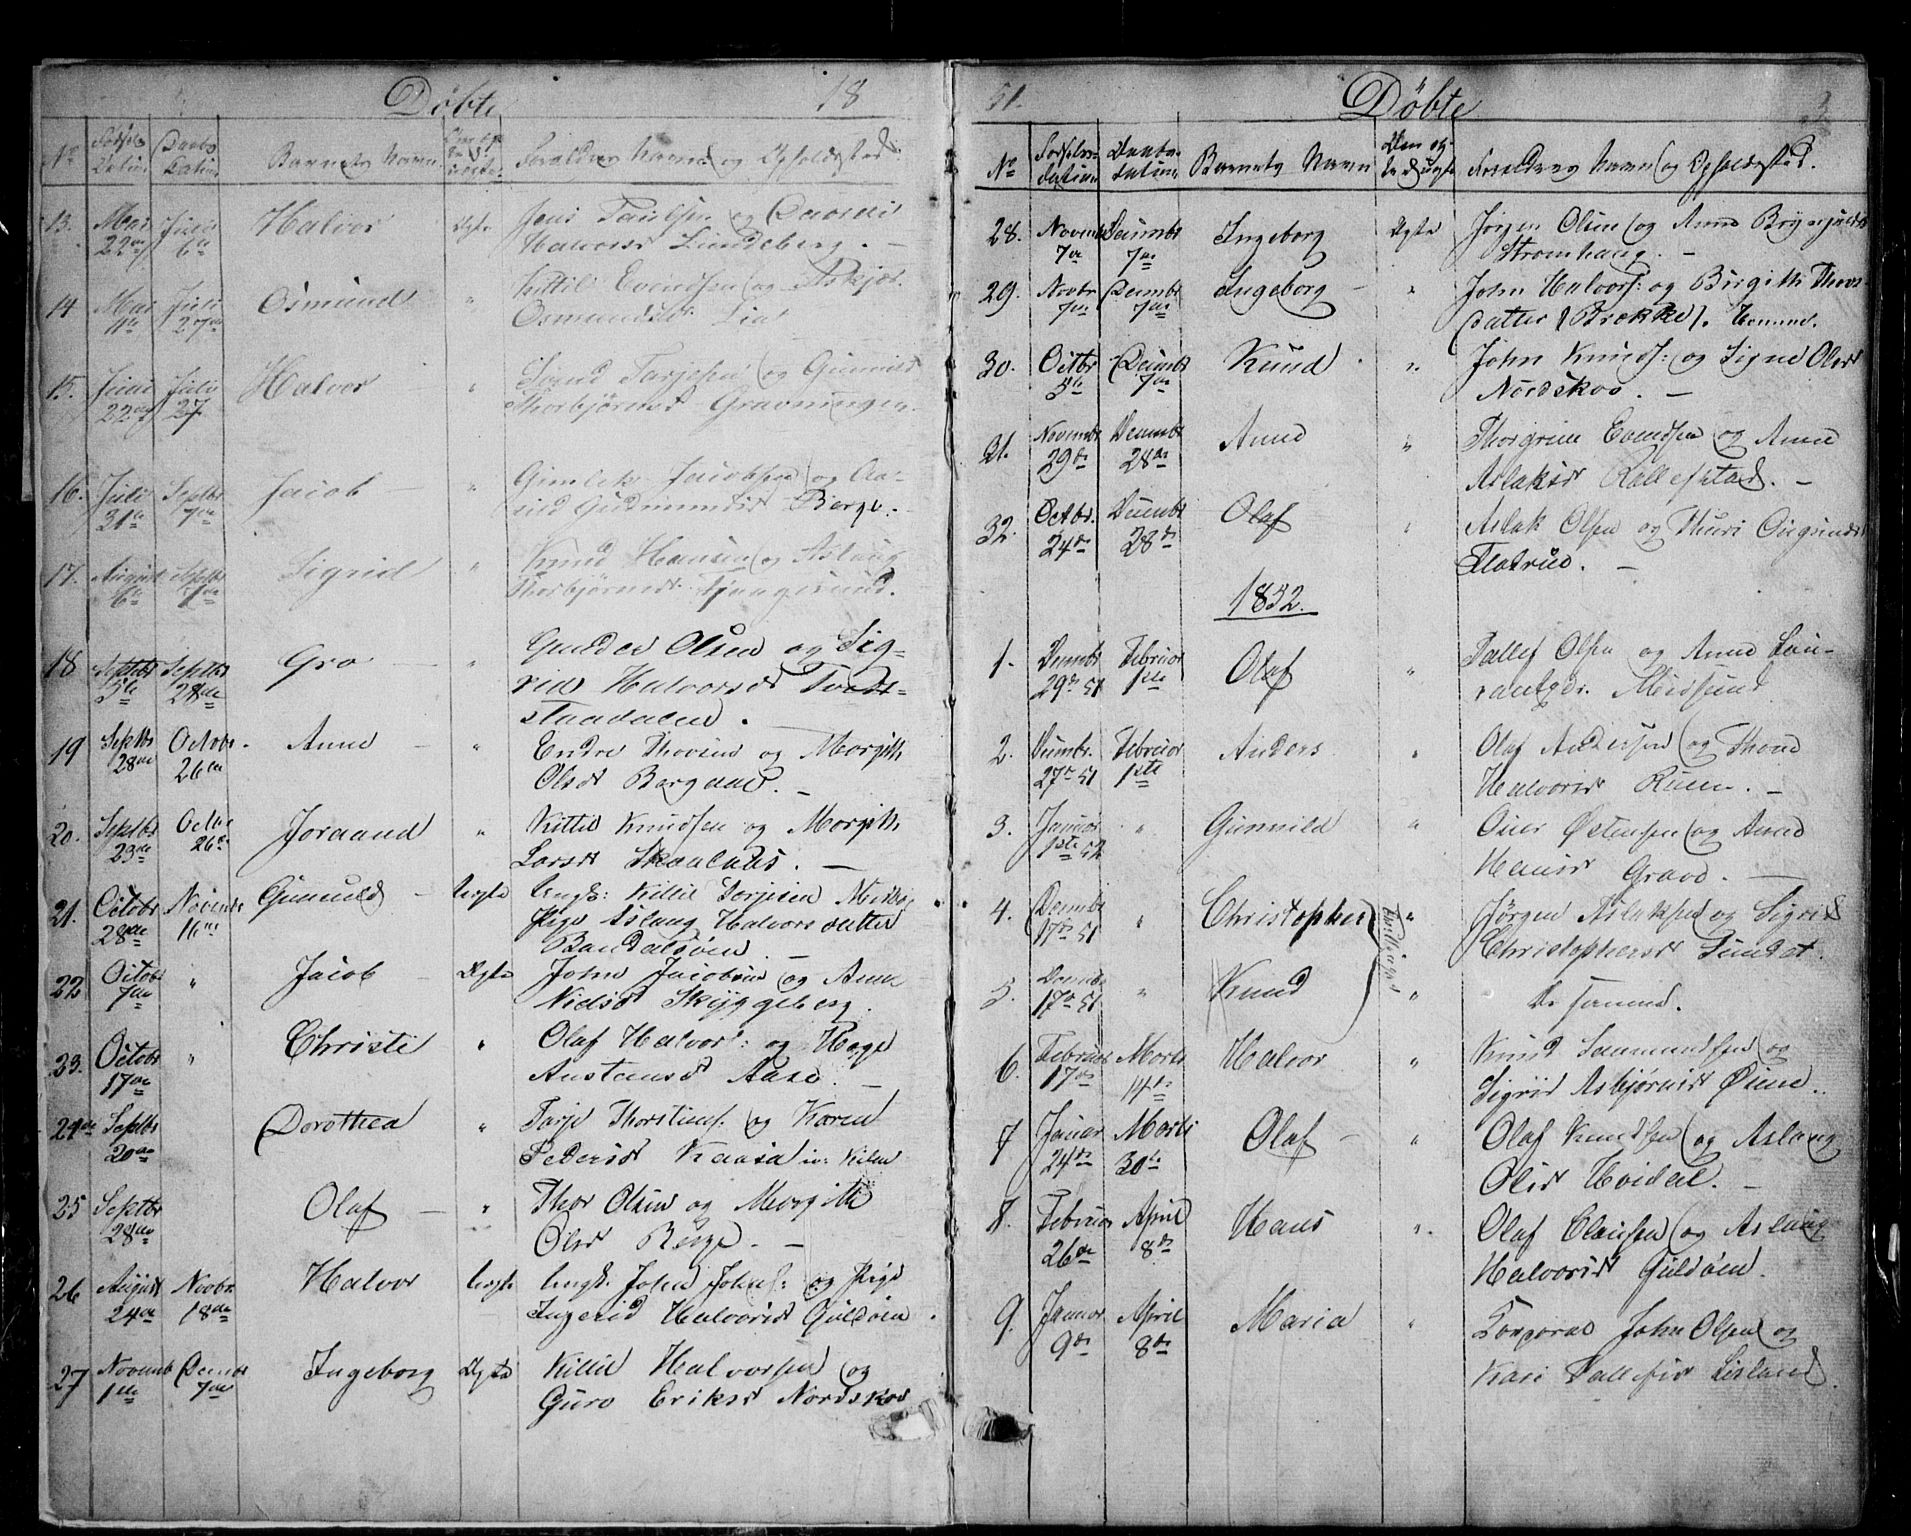 Döbte 18
No Fødsels Datum Daabs Datum Barnets Navn Forældres Navne og Opholdssted
13. Mai 22de Juli 6te Halvor Ægte Jens Paulsen og
Halvorsd Lundeberg. —
14 Mai Juli 27de Osmund " Kittil Evendsen og Askjer
Osmundsdr Lia
15. Juni 22de Juli 27 Halvor " Svend Tarjesen og Gunnild
Thorbjørnsd Gravningen.
16. Juli 31te Septbr 7de Jacob — " Jacobsen og Aa-
sild Gudmundsd Berge.
17. August 6te Septbr Sigrid " Knud Hansen og Aslaug
Thorbjørnsd
18 Septbr 5te Septbr 28de Gro — " Gunder Olsen og Sig-
rid Halvorsd Tveit-
staadalen.
19 Septbr 28de Octobr. 26de Anne — " Endre Thorsen og Margith
Olsd Borgaae. —
20. Septbr 23de Octbr 26de Joraand " Kittil Knudsen og Margith
Larsd Skaalnæs. —
21. Octobr 28de Novemb 16de Gunnuld — Uægte Ungk: Kittil Torjesen
Pige Aslaug Halvorsdatter
Bandalsöen. —
22 Octobr 7de " Jacob — Ægte John Jacobsen og Anne
Nielsd Skyggeberg.
23. Octobr 17de " Christi " Olaf Halvors: og Hæge
Austensd Aase. —
24de Septbr 20de Dorothea " Tarje Thorstens. og Karen
Pedersd Kaasa in: Kilen
25 Septbr 28de Olaf — " Thor Olsen og Margith
Olsd Berge. —
26 August 24de Novbr. 18de Halvor Uægte Ungk. John Johns: og Pige
Ingerid Halvorsd Guldöen.
27 Novemb 1ste Decmbr 7de Ingeborg Ægte Kittil Halvorsen og
Guro Eriksd Nordskov
51. Döbte 3
No Fødsels datum Daabs datum Barnets Navn Om ægte el uægte Forældres Navn og Opholdssted.
28. Novemb 7de Decembr 7de Ingeborg Ægte Jörgen Olsen og Anne Brynjulsd
Strømhaug. —
29. Novbr 7de Decmbr 7de Ingeborg — " John Halvors: og Birgith Thors
datter (Brekke).
30. Octbr 5te Decmbr 7de Knud " John Knuds: og Signe Olsd
Nordskov. —
31. Novembr 29de Decembr 28de Anne " Thorgrim Evendsen og Anne
Aslaksd Rollefstad. —
32. Octbr. 24de Decmbr 28de Olaf " Aslak Olsen og Thuri
Flatrud. —
1852.
1. Decmbr 29de 51 Februar 1ste Olaf " Tallef Olsen og Anne Lau-
rantzdr. Meidsund
2. Decmbr. 27de 51 Februar 1ste Anders " Olaf Andersen og Thone
Halvorsd Ruen. —
3. Januar 1ste 52 " Gunnild " Östensen og Anne
Hansd Grave. —
4. Decmbr 17de 51 " Christopher Tvillinger " Jörgen Aslaksen og Sigrid
Christophersd Sundet.
5. Decmbr 17de 51 " Knud " De samme.
6. Februar 17de Marts 14de Halvor " Knud Sammundsen og
Sigrid Asbjørnsd Öiene.
7 Januar 24de Marts 30te Olaf — " Olaf Knudsen og Aslaug
Olsd Hvidal. —
8. Februar 26de April 8de Hans " Olaf Clausen og Aslaug
Halvorsd Guldöen.
9. Januar 9de April 8de Maria " Corporal John Olsen og
Kari Tallefsd Lisland.